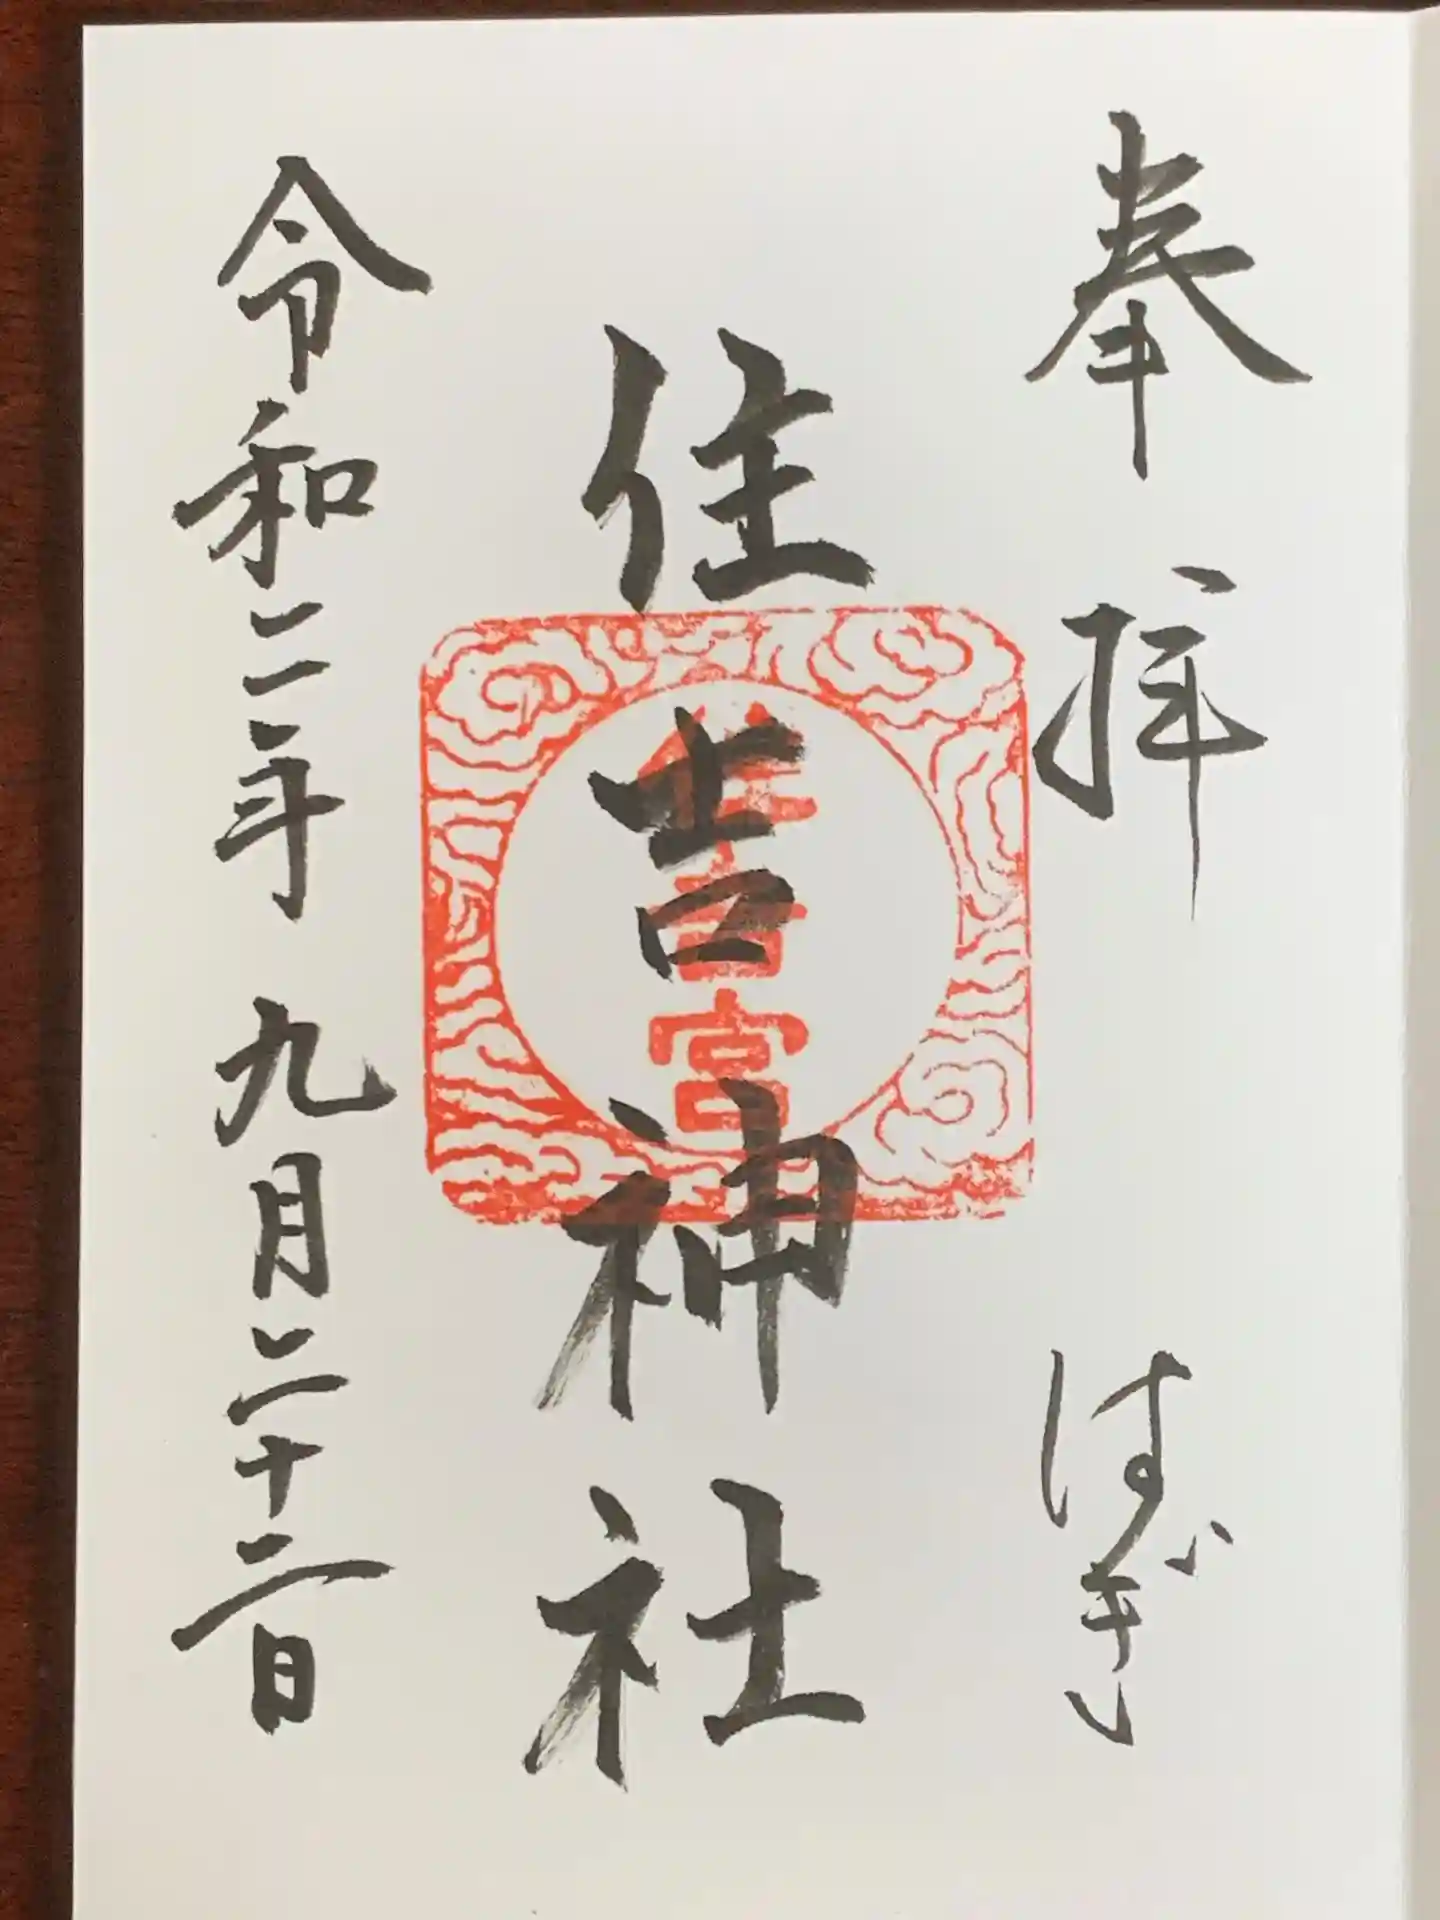 奉拝
はぎ
住吉神社
住吉宮
令和二年九月二十二日